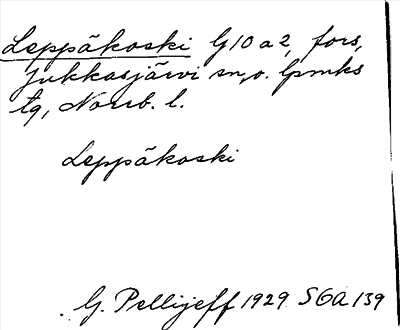 Leppäkoski G10a2, fors,
Jukkasjärvi sn, o. lpmks
tg, Norrb. l.
Leppäkoski
G. Pellijeff 1929 SOA 139